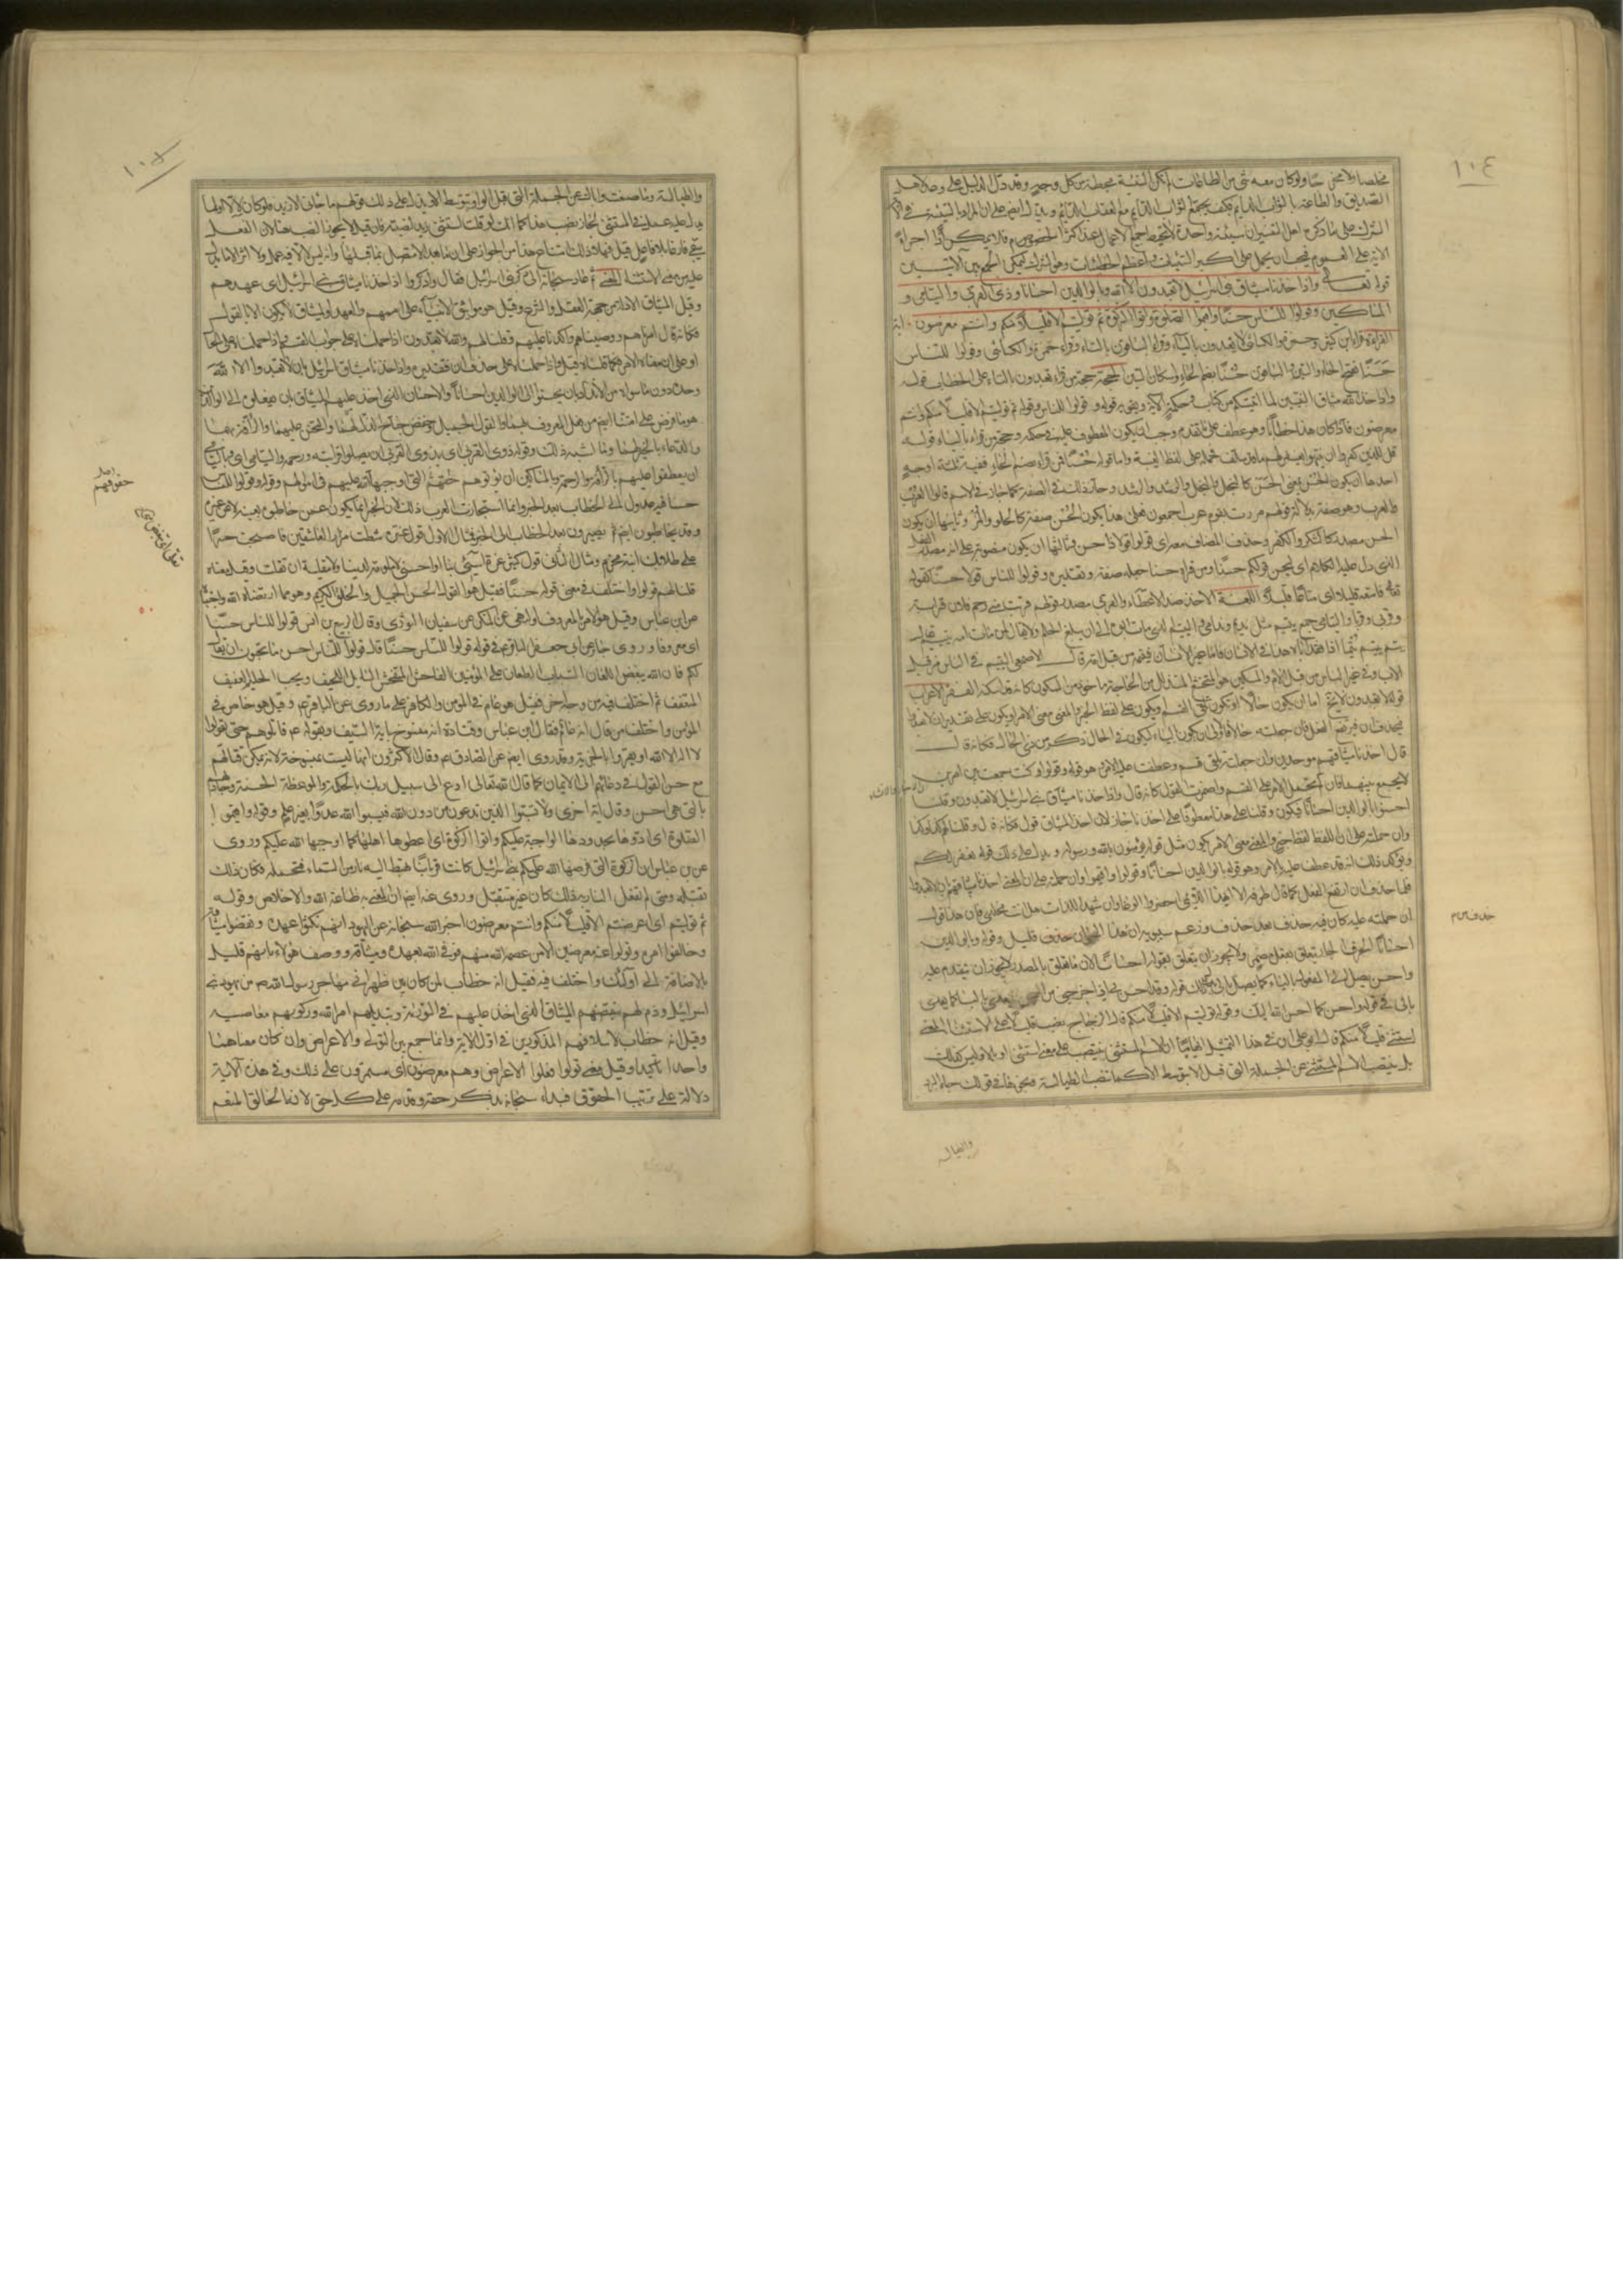 ١٠٤
مخلصا ولا محضا ولو كان معه شئ من الطاعات لم تكن السيئة محيطة من كل وجه وقد دل الدليل على
الصديق والطاعة بالثواب الدائم فكيف يجتمع الثواب الدائم مع العقاب الدائم ويدل ايضا على ان المراد بالسيئة في الآية
الشرك على ما ذكره اهل التفسير ان سيئة واحدة لا تحبط جميع الاعمال عند اكثر الخصوم فلا يمكن اذا اجراء
الآية على العموم فيجب ان يحمل على اكبر السيئات واعظم الخطيئات وهو الشرك ليمكن الجمع بين الآيتين
قوله تعالى واذ اخذنا ميثاق بنى اسرائيل لا تعبدون الا الله وبالوالدين احسانا وذى القربى واليتامى و
المساكين وقولوا للناس حسنا واقيموا الصلوة وآتوا الزكوة ثم توليتم الا قليلا منكم وانتم معرضون
القراءة قراء ابن كثير وحمزة والكسائى لا يعبدون بالياء وقراء الباقون بالتاء وقراء حمزة والكسائى وقولوا للناس
حَسَنًا بفتح الحاء والسين الباقون حُسْنًا بضم الحاء واسكان السين الحجة حجة من قراء تعبدون بالتاء على الخطاب قوله
واذ اخذ الله ميثاق النبيين لما آتيتكم من كتاب وحكمة الآية ويقويه قوله وقولوا للناس وقوله ثم توليتم الا قليلا منكم وانتم
معرضون فاذا كان هذا خطابا وهو عطف على ما تقدم وجب ان يكون المعطوف عليه في حكمه وحجة من قراء بالياء قوله
قل للذين كفروا ان ينتهوا يغفر لهم ما قد سلف فحمله على لفظ الغيبة واما قوله حسنا فمن قراء بضم الحاء ففيه ثلثة اوجه
احدها ان يكون الحسن بمعنى الحسن كالبخل والبخل والرشد والرشد وجاز ذلك في الصفة كما جاز في الاسم قالوا العرب
والعرب وهو صفة بدلالة قولهم مررت بقوم عرب اجمعون فعلى هذا يكون الحسن صفة كالحلو والمر وثانيها ان يكون
الحسن مصدرا كالشكر والكفر وحذف المضاف معه اى قولوا قولا ذا حسن وثالثها ان يكون منصوبا على انه مصدر الفعل
الذى دل عليه الكلام اى ليحسن قولكم حسنا ومن قراء حسنا جعله صفة وتقديره وقولوا للناس قولا حسنا كقوله
فامتعه قليلا اى متاعا قليلا اللغة الاخذ ضد الاعطاء والقربى مصدر قولهم قربت منى رحم فلان قرابة
وقربى وقربا واليتامى جمع يتيم مثل نديم وندامى واليتيم الذى مات ابوه الى ان يبلغ الحلم ولا يقال لمن ماتت امه يتيم يقال
يتم ييتم يتما اذا فقد اباه هذا في الانسان فاما غير الانسان فيتمه من قبل امه قال الاصمعى اليتيم في الناس من قبل
الاب وفي غير الناس من قبل الام والمسكين هو المتخشع المتذلل من الحاجة ماخوذ من السكون كانه قد اسكنه الفقر الاعراب
قوله لا تعبدون لا يخلو اما ان يكون حالا او يكون تلقى القسم او يكون على لفظ الخبر والمعنى معنى الامر او يكون على تقدير ان لا تعبدوا
فيحذف ان فيرتفع الفعل فان جعلته حالا فالاولى ان يكون بالياء ليكون في الحال ذكر من ذى الحال فكانه قال
قال اخذنا ميثاقهم موحدين وان جعلته تلقى قسم وعطفت عليه الامر وهو قوله وقولوا كنت جمعت بين امرين
لا يجمع بينهما فان لم تحمل الامر على القسم واضمرت القول كانه قال واذ اخذنا ميثاق بنى اسرائيل لا تعبدون وقلنا
احسنوا بالوالدين احسانا فيكون وقلنا على هذا معطوفا على اخذنا جاز لان اخذ الميثاق قول فكانه قال وقلنا لهم كذا وكذا
وان حملته على ان اللفظ لفظ خبر والمعنى معنى الامر يكون مثل قوله تؤمنون بالله ورسوله ويدل على ذلك قوله يغفر لكم
ويؤكد ذلك انه قد عطف عليه بالامر وهو قوله بالوالدين احسانا وقولوا واقيموا وان حملته على ان المعنى اخذنا ميثاقهم بان لا تعبدوا
فلما حذف ان ارتفع الفعل كما قال طرفة الا ايهذا الزاجرى احضر الوغا وان اشهد اللذات هل انت مخلدى فان هذا قول
ان حملته عليه كان فيه حذف بعد حذف وزعم سيبويه ان حذف ان قليل وقوله وبالوالدين
احسانا الحرف الجار يتعلق بفعل مضمر ولا يجوز ان يتعلق بقوله احسانا لان ما يتعلق بالمصدر لا يجوز ان يتقدم عليه
واحسن يصل الى المفعول بالباء كما يصل بالى يدلك على ذلك قوله وقد احسن بى اذ اخرجنى من السجن كما تعدى
بالى في قوله واحسن كما احسن الله اليك وقوله ثم توليتم الا قليلا منكم قال الزجاج نصب قليلا على الاستثناء المعنى
استثنى قليلا منكم قال ابو على ان في هذا التمثيل ايهاما ان الاسم المستثنى ينتصب على معنى استثنى او بالا وليس كذلك
بل ينتصب الاسم المستثنى عن الجملة التي قبل الا بتوسط الا كما نصب الطيالسة ونحوها في قولك جاء البرد
والطيالسة
حذف من م
١٠٥
والطيالسة وما صنعت واباك عن الجملة التي قبل الواو بتوسط الواو ويدل على ذلك قولهم ما جاءنى الا زيد فلو كان لالا او لما
يدل عليه عمل في المستثنى لجاز نصب هذا كما انك لو قلت استثنى زيدا لنصبته فان قيل لا يجوز النصب هنا لان الفعل
يبقى فارغا بلا فاعل قيل فهلا ذلك امتناع هذا من الجواز على ان ما بعد الا متصل بما قبلها وانه ليس لالا فيه عمل ولا اثر الا ما يدل
عليه من معنى الاستثناء المعنى ثم عاد سبحانه الى ذكر بنى اسرائيل فقال واذكروا اذ اخذنا ميثاق بنى اسرائيل اى عهدهم
وقيل الميثاق الادلة من جهة العقل والشرع وقيل هو مواثيق الانبياء على اممهم والعهد والميثاق لا يكون الا بالقول
فكانه قال امرناهم ووصيناهم واكدنا عليهم وقلنا لهم والله لا تعبدون اذا حملناه على جواب القسم فاذا حملناه على الحال
او على ان معناه الامر فكما قلناه قبل واذا حملناه على حذف ان فتقديره واذ اخذنا ميثاق بنى اسرائيل بان لا تعبدوا الا الله
وحده دون ما سواه من الانداد بان يحسنوا الى الوالدين احسانا والاحسان الذى اخذ عليهم الميثاق بان يفعلوه الى الوالدين
هو ما فرض على امتنا ايضا من فعل المعروف بهما والقول الجميل وخفض جناح الذل لهما والتحنن عليهما والرأفة بهما
والدعاء بالخير لهما وما اشبه ذلك وقوله وذى القربى اى وبذوى القربى ان تصلوا قرابته ورحمه واليتامى اى وباليتامى
ان تعطفوا عليهم بالرأفة والرحمة وبالمساكين ان تؤتوهم حقوقهم التي اوجبها الله عليهم في اموالهم وقوله وقولوا للناس
حسنا فيه عدول الى الخطاب بعد الخبر وانما استجازت العرب ذلك لان الخبر انما يكون عمن خاطبوه بعينه لا عن غيره
وقد يخاطبون ايضا ثم يصيرون بعد الخطاب الى الخبر فمثال الاول قول عنترة شطت مزار العاشقين فاصبحت عسرا
على طلابك ابنة مخرم ومثال الثانى قول كثير عزة اسيئى بنا او احسنى لا ملومة لدينا ولا مقلية ان تقلت وقيل معناه
قلنا لهم قولوا واختلف في معنى قوله حسنا فقيل هو القول الحسن الجميل والخلق الكريم وهو مما ارتضاه الله واحبه
عن ابن عباس وقيل هو الامر بالمعروف والنهى عن المنكر عن سفيان الثورى وقال الربيع بن انس قولوا للناس حسنا
اى معروفا وروى جابر عن ابى جعفر الباقر في قوله وقولوا للناس حسنا قال قولوا للناس احسن ما تحبون ان يقال
لكم فان الله يبغض اللعان السباب الطعان على المؤمنين الفاحش المتفحش السائل الملحف ويحب الحليم العفيف
المتعفف ثم اختلف فيه من وجه آخر فقيل هو عام في المؤمن والكافر على ما روى عن الباقر وقيل هو خاص في
المؤمن واختلف من قال انه عام فقال ابن عباس وقتادة انه منسوخ بآية السيف وبقوله قاتلوهم حتى يقولوا
لا اله الا الله او يقروا بالجزية وقد روى ايضا عن الصادق وقال الاكثرون انها ليست بمنسوخة لانه يمكن قتالهم
مع حسن القول في دعائهم الى الايمان كما قال الله تعالى ادع الى سبيل ربك بالحكمة والموعظة الحسنة وجادلهم
بالتى هى احسن وقال في آية اخرى ولا تسبوا الذين يدعون من دون الله فيسبوا الله عدوا بغير علم وقوله واقيموا
الصلوة اى ادوها بحدودها الواجبة عليكم وآتوا الزكوة اى اعطوها اهلها كما اوجبها الله عليكم وروى
عن ابن عباس ان الزكوة التي فرضها الله على بنى اسرائيل كانت قربانا تهبط اليه نار من السماء فتحمله فكان ذلك
تقبله ومتى لم تفعل النار به ذلك كان غير متقبل وروى عنه ايضا ان المعنى به طاعة الله والاخلاص وقوله
ثم توليتم اى اعرضتم الا قليلا منكم وانتم معرضون اخبر الله سبحانه عن اليهود انهم نكثوا عهده ونقضوا ميثاقه
وخالفوا امره وتولوا عنه معرضين الا من عصمه الله منهم فوفى الله بعهده وميثاقه ووصف هؤلاء بانهم قليل
بالاضافة الى اولئك واختلف فيه فقيل انه خطاب لمن كان بين ظهرانى مهاجر رسول الله من يهود بنى
اسرائيل وذم لهم بنقضهم الميثاق الذى اخذ عليهم في التورية وتبديلهم امر الله وركوبهم معاصيه
وقيل انه خطاب لاسلافهم المذكورين في اول الآية وانما جمع بين التولى والاعراض وان كان معناهما
واحدا تأكيدا وقيل معنى تولوا فعلوا الاعراض وهم معرضون اى مستمرون على ذلك وفي هذه الآية
دلالة على ترتيب الحقوق فبدأ سبحانه بذكر حقه وقدمه على كل حق لانه الخالق المنعم
حقوقهم